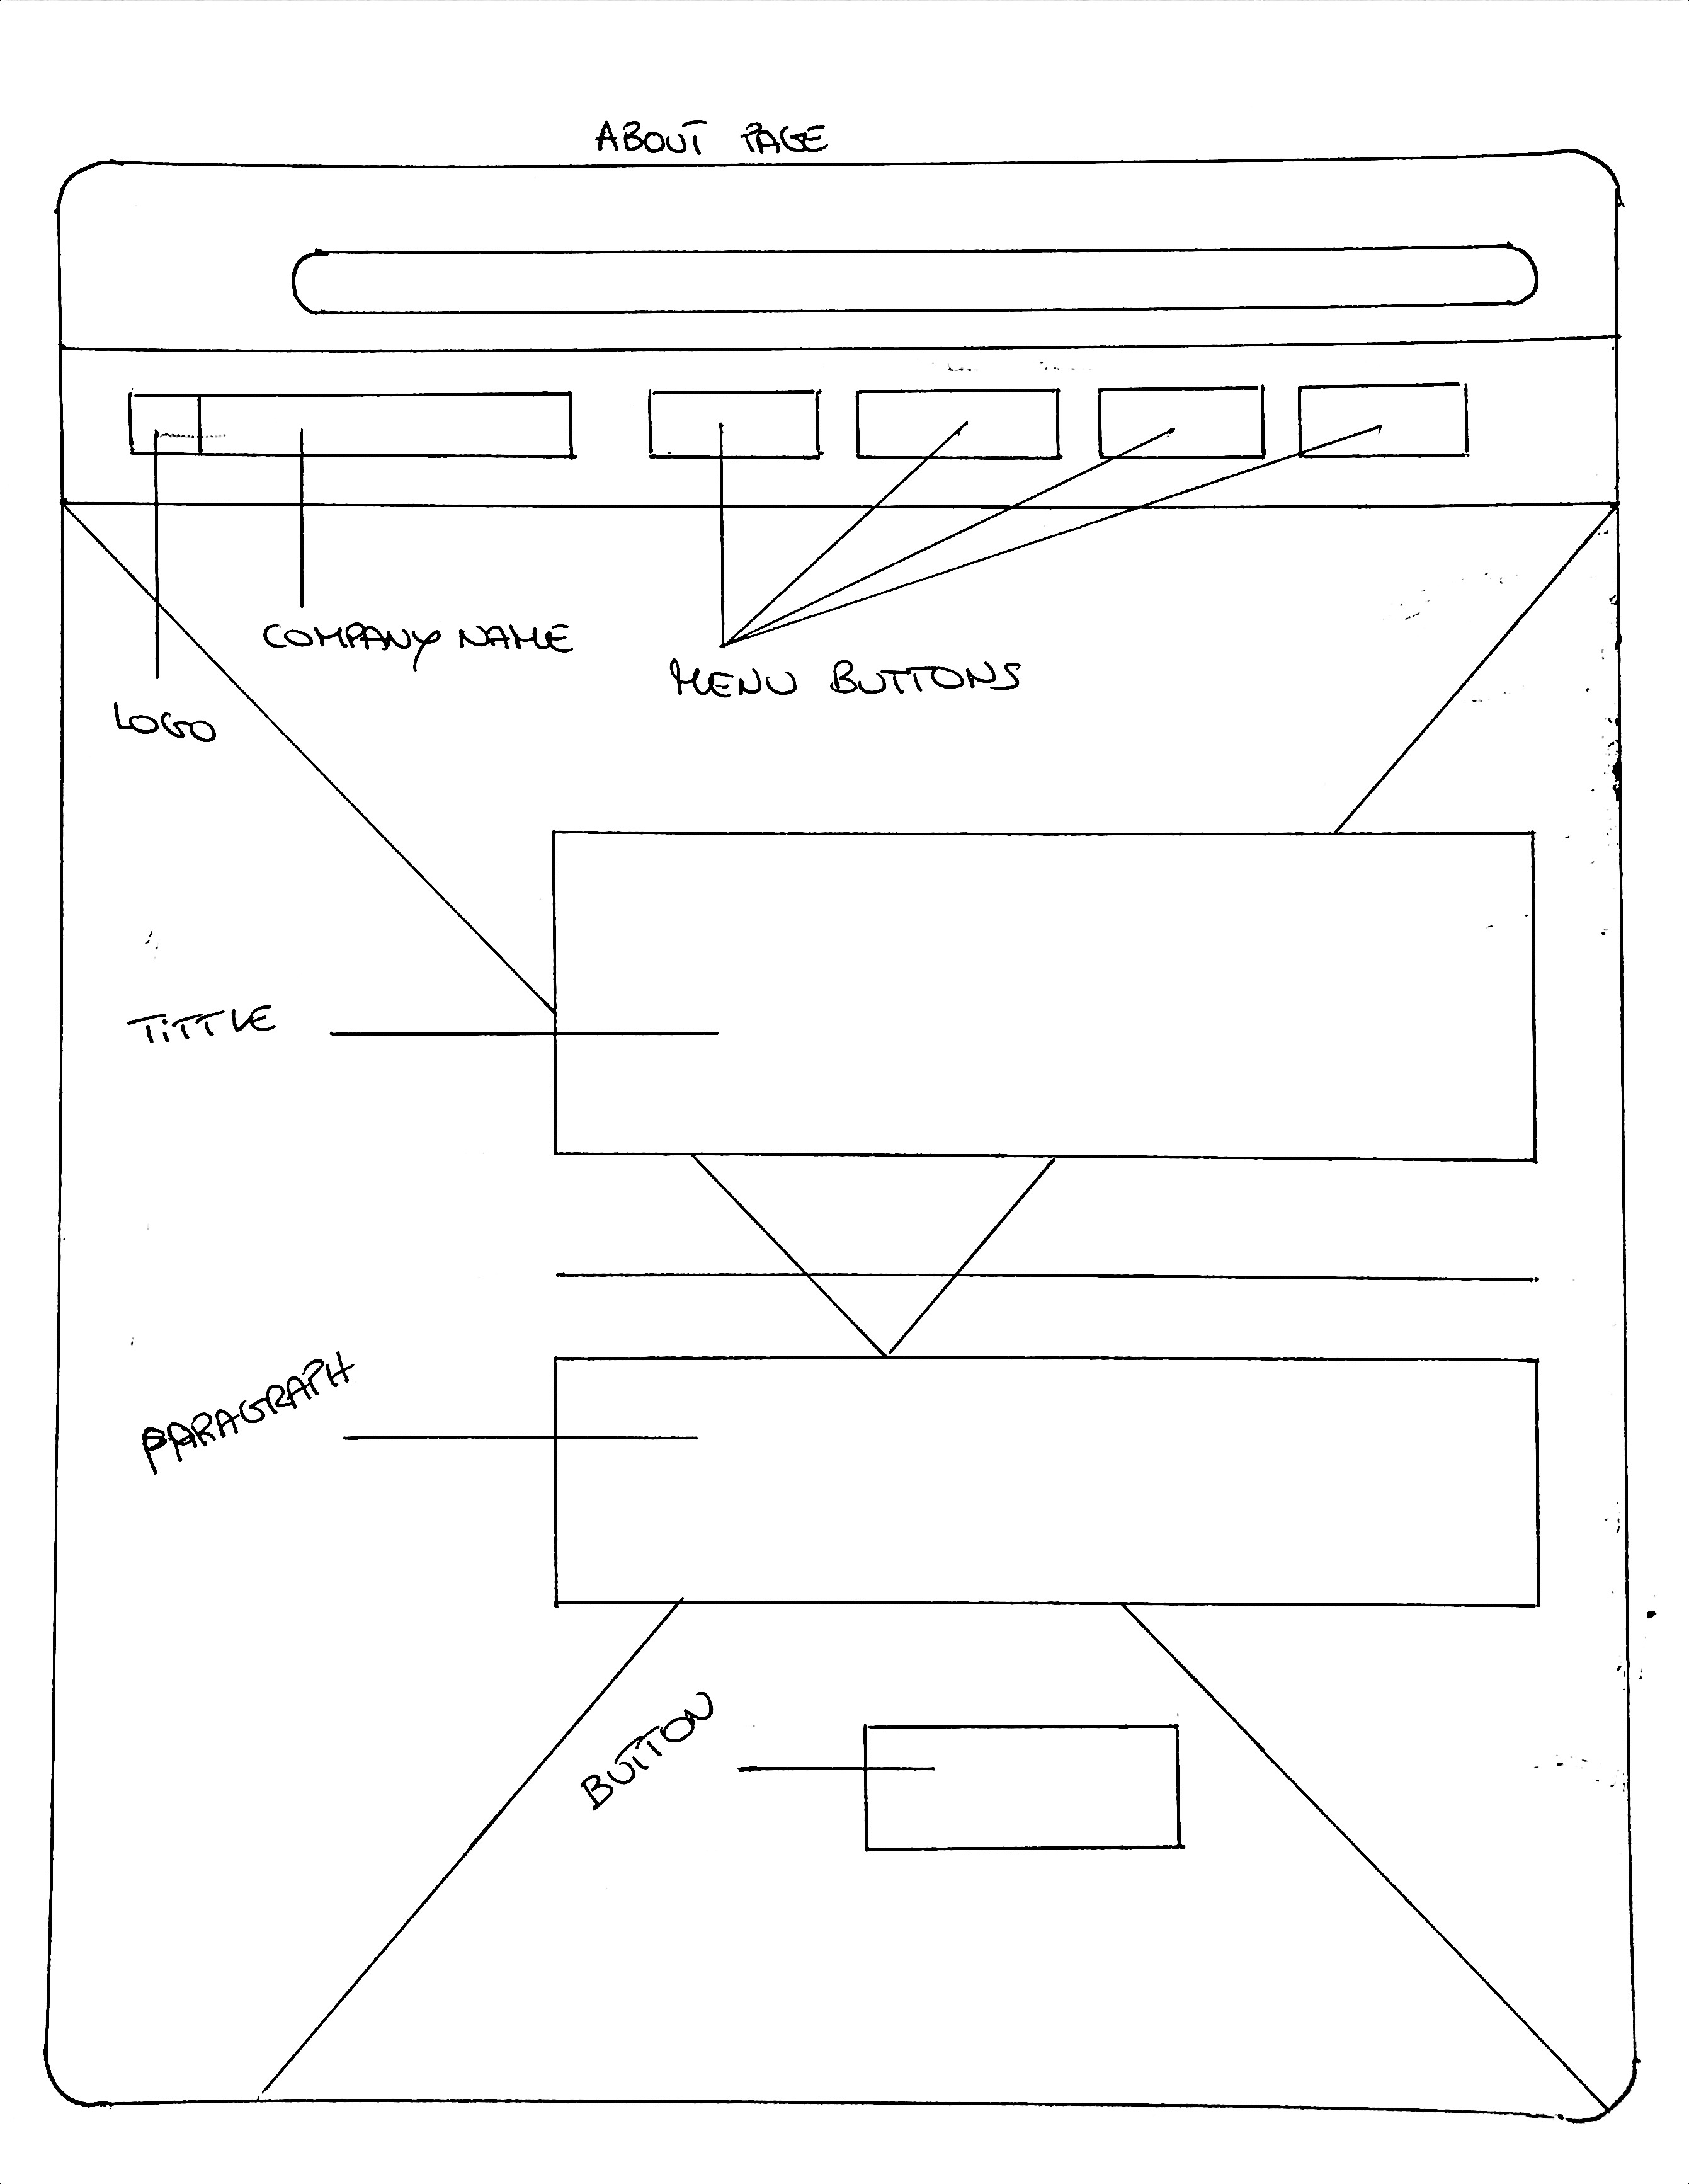 ABOUT PAGE
COMPANY NAME
MENU BUTTONS
LOGO
TITTLE
PARAGRAPH
BUTTON